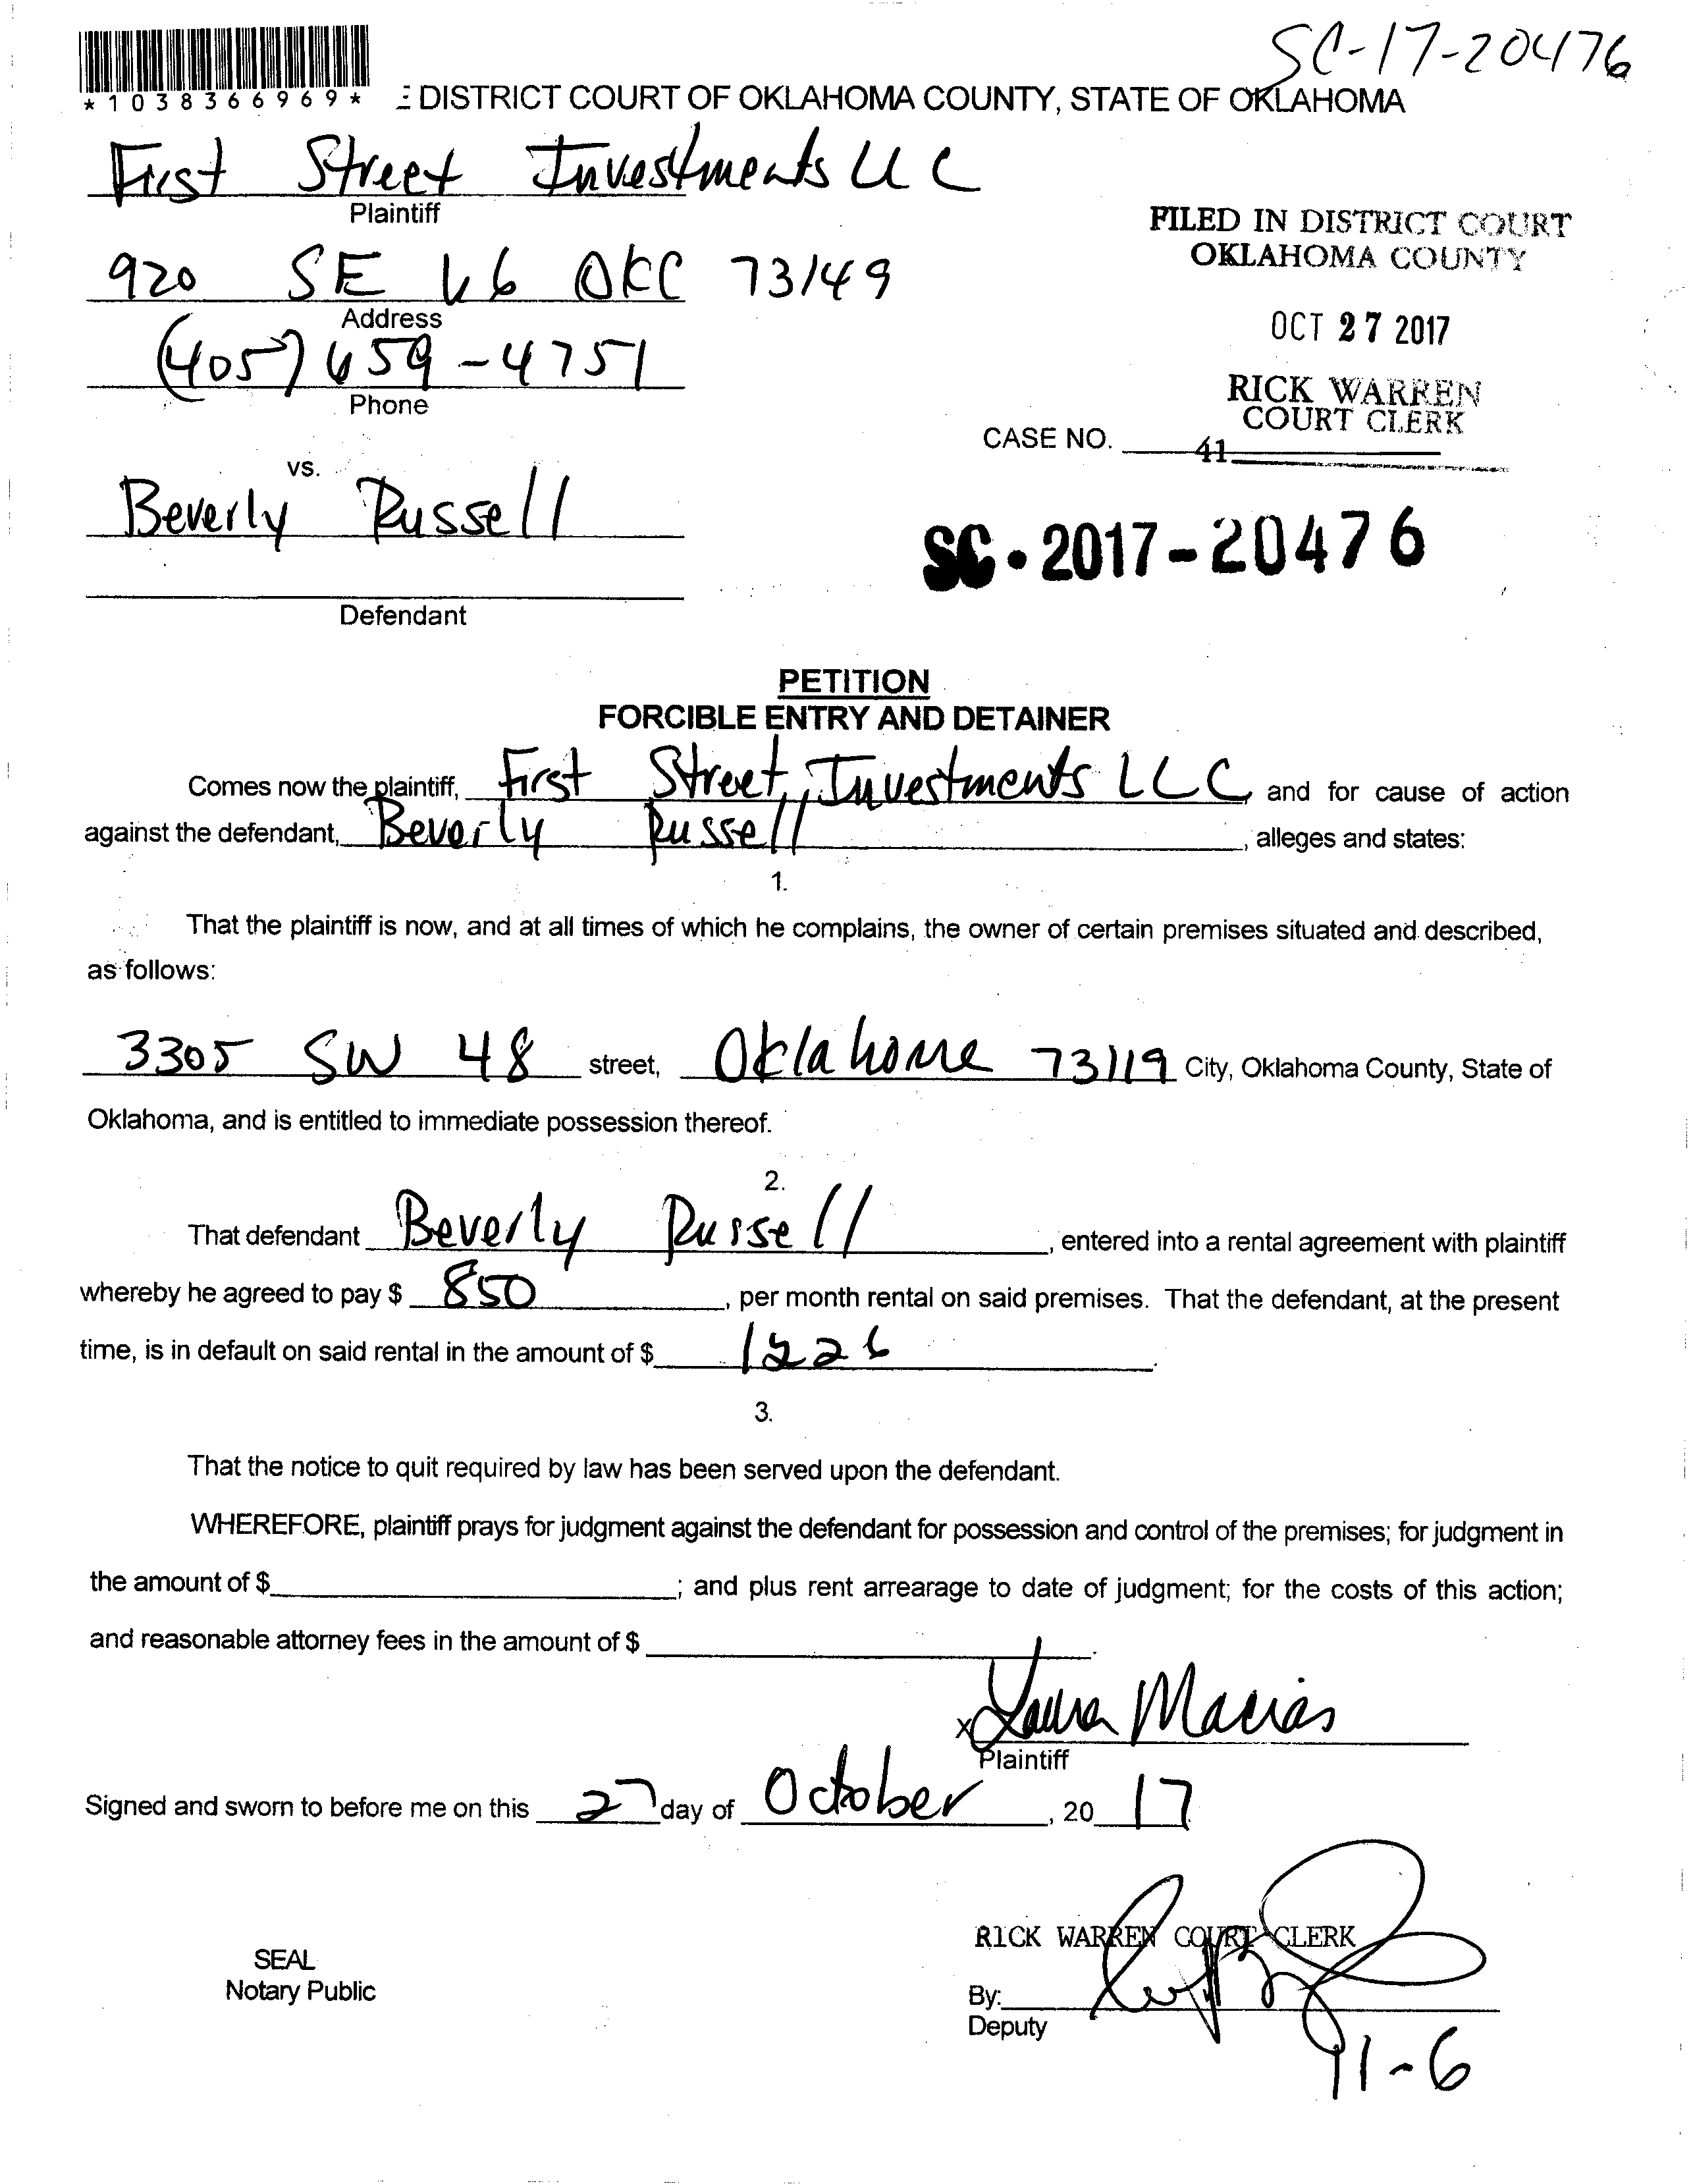 SC-17-20476
*1038366969*
E DISTRICT COURT OF OKLAHOMA COUNTY, STATE OF OKLAHOMA
First Street Investments LLC
Plaintiff
FILED IN DISTRICT COURT
OKLAHOMA COUNTY
920 SE 66 OKC 73149
Address
OCT 27 2017
(405) 659-4751
Phone
RICK WARREN
COURT CLERK
CASE NO. 41
vs.
Beverly Russell
SC-2017-20476
Defendant
PETITION
FORCIBLE ENTRY AND DETAINER
Comes now the plaintiff, First Street, Investments LLC, and for cause of action
against the defendant, Beverly Russell, alleges and states:
1.
That the plaintiff is now, and at all times of which he complains, the owner of certain premises situated and described,
as follows:
3305 SW 48 street, Oklahome 73119 City, Oklahoma County, State of
Oklahoma, and is entitled to immediate possession thereof.
2.
That defendant Beverly Russell, entered into a rental agreement with plaintiff
whereby he agreed to pay $ 850, per month rental on said premises. That the defendant, at the present
time, is in default on said rental in the amount of $ 1226.
3.
That the notice to quit required by law has been served upon the defendant.
WHEREFORE, plaintiff prays for judgment against the defendant for possession and control of the premises; for judgment in
the amount of $ ; and plus rent arrearage to date of judgment; for the costs of this action;
and reasonable attorney fees in the amount of $ .
x Laura Macias
Plaintiff
Signed and sworn to before me on this 27 day of October, 2017
RICK WARREN COURT CLERK
SEAL
Notary Public
By:
Deputy
11-6